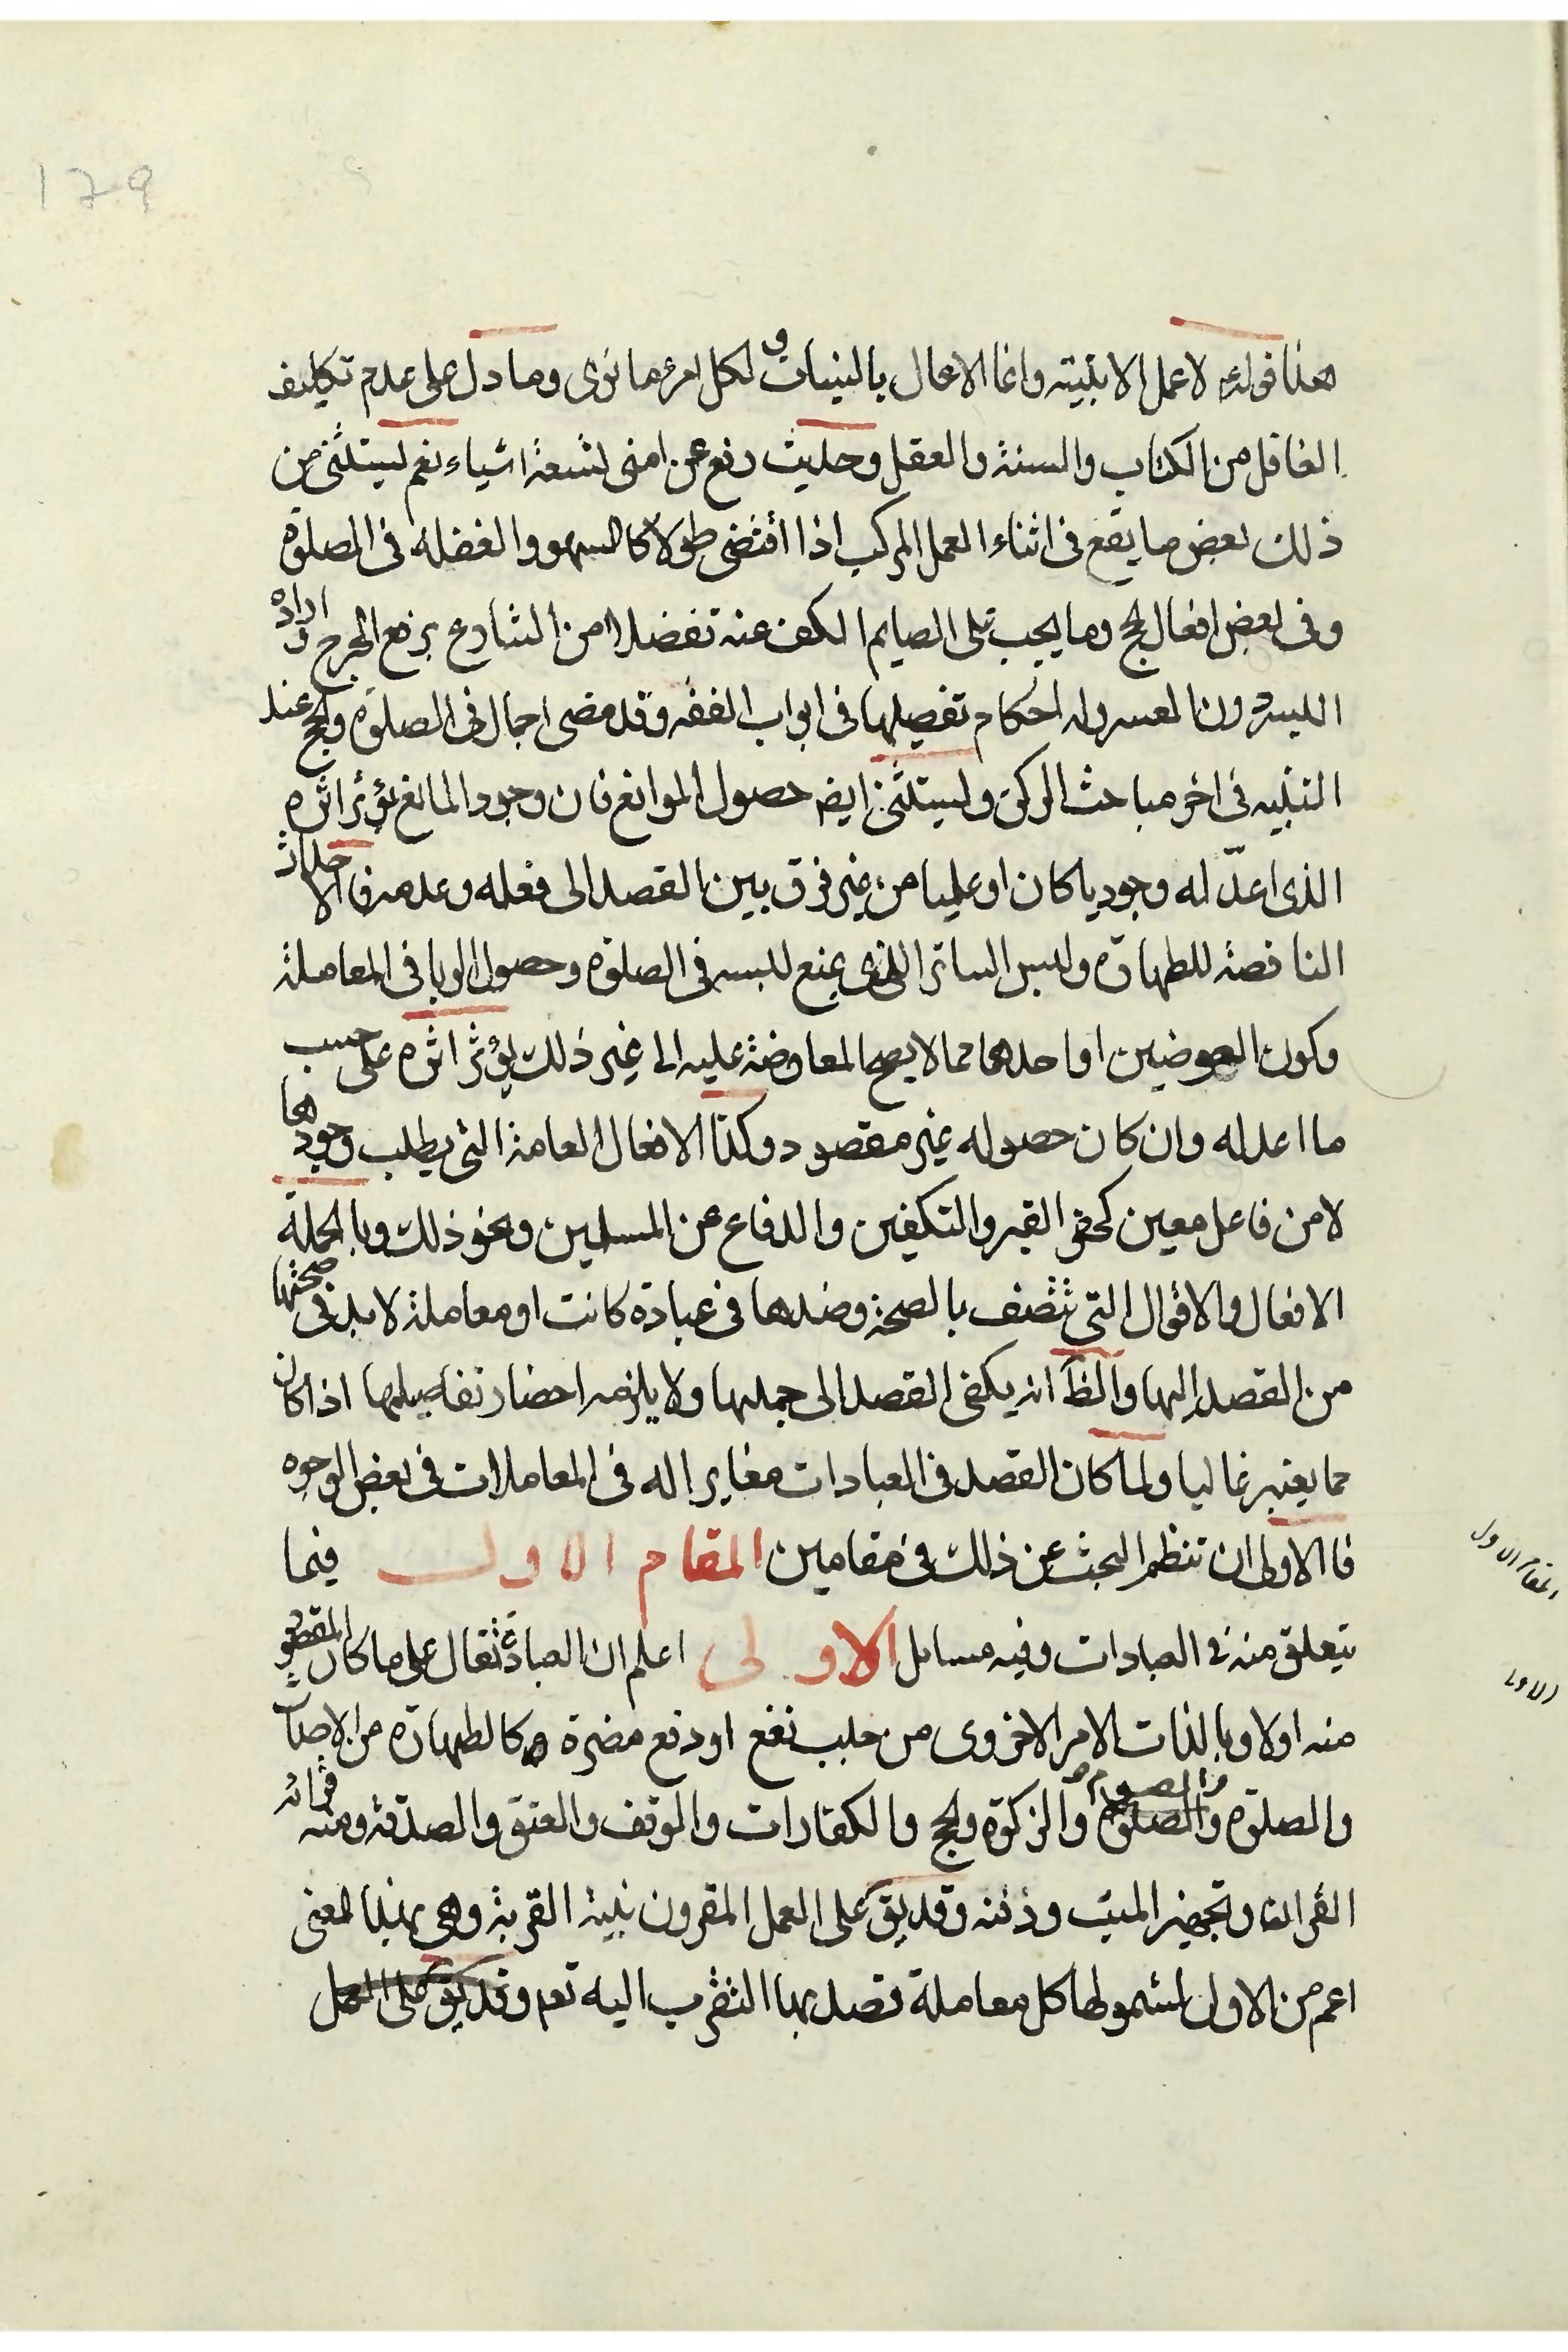 ١٢٩
هذا قوله ع لا عمل الا بنية وانما الاعمال بالنيات و لكل امرء ما نوى وما دل على عدم تكليف
الغافل من الكتاب والسنة والعقل وحديث رفع عن امتى تسعة اشياء نعم يستثنى من
ذلك بعض ما يقع فى اثناء العمل المركب اذا اقتضى طولا كالسهو والغفلة فى الصلوة
وفى بعض افعال الحج وما يجب على الصايم الكف عنه تفضلا من الشارع برفع الحرج و ارادة
اليسر دون العسر وله احكام تفصيلها فى ابواب الفقه وقد مضى اجمال فى الصلوة والحج عند
التنبيه فى اخر مباحث الركن ويستثنى ايضا حصول الموانع فان وجود المانع يؤثر اثره
الذى اعدّ له وجوديا كان او عدميا من غير فرق بين القصد الى فعله وعدمه فالاحداث
الناقصة للطهارة ولبس الساتر الذى يمنع لبسه فى الصلوة وحصول الربا فى المعاملة
وكون العوضين او احدهما مما لا يصح المعاوضة عليه الى غير ذلك يؤثر اثره على حسب
ما اعد له وان كان حصوله غير مقصود وكذا الافعال العامة التى يطلب وجودها
لا من فاعل معين كحفر القبر والتكفين والدفاع عن المسلمين ونحو ذلك وبالجملة
الافعال والاقوال التى تتصف بالصحة وضدها فى عبادة كانت او معاملة لا بد فى صحتها
من القصد اليها والظ انه يكفى القصد الى جملها ولا يلزمه احضار تفاصيلها اذا كان
مما يعتبر غالبا ولما كان القصد فى العبادات مغايرا له فى المعاملات فى بعض الوجوه
فالاولى ان تنظم البحث عن ذلك فى مقامين المقام الاول فيما
يتعلق منه فى العبادات وفيه مسائل الاولى اعلم ان العبادة تقال على ما كان المقصود
منه اولا وبالذات الامر الاخروى من جلب نفع او دفع مضرة كالطهارة من الاحداث
والصلوة والصوم والزكوة والحج والكفارات والوقف والعتق والصدقة ومنه قرائة
القران وتجهيز الميت ودفنه وقد يق على العمل المقرون بنية القربة وهى بهذا المعنى
اعم من الاولى لشمولها كل معاملة قصد بها التقرب اليه تعم وقد يق على العمل
المقام الاول
الاولى